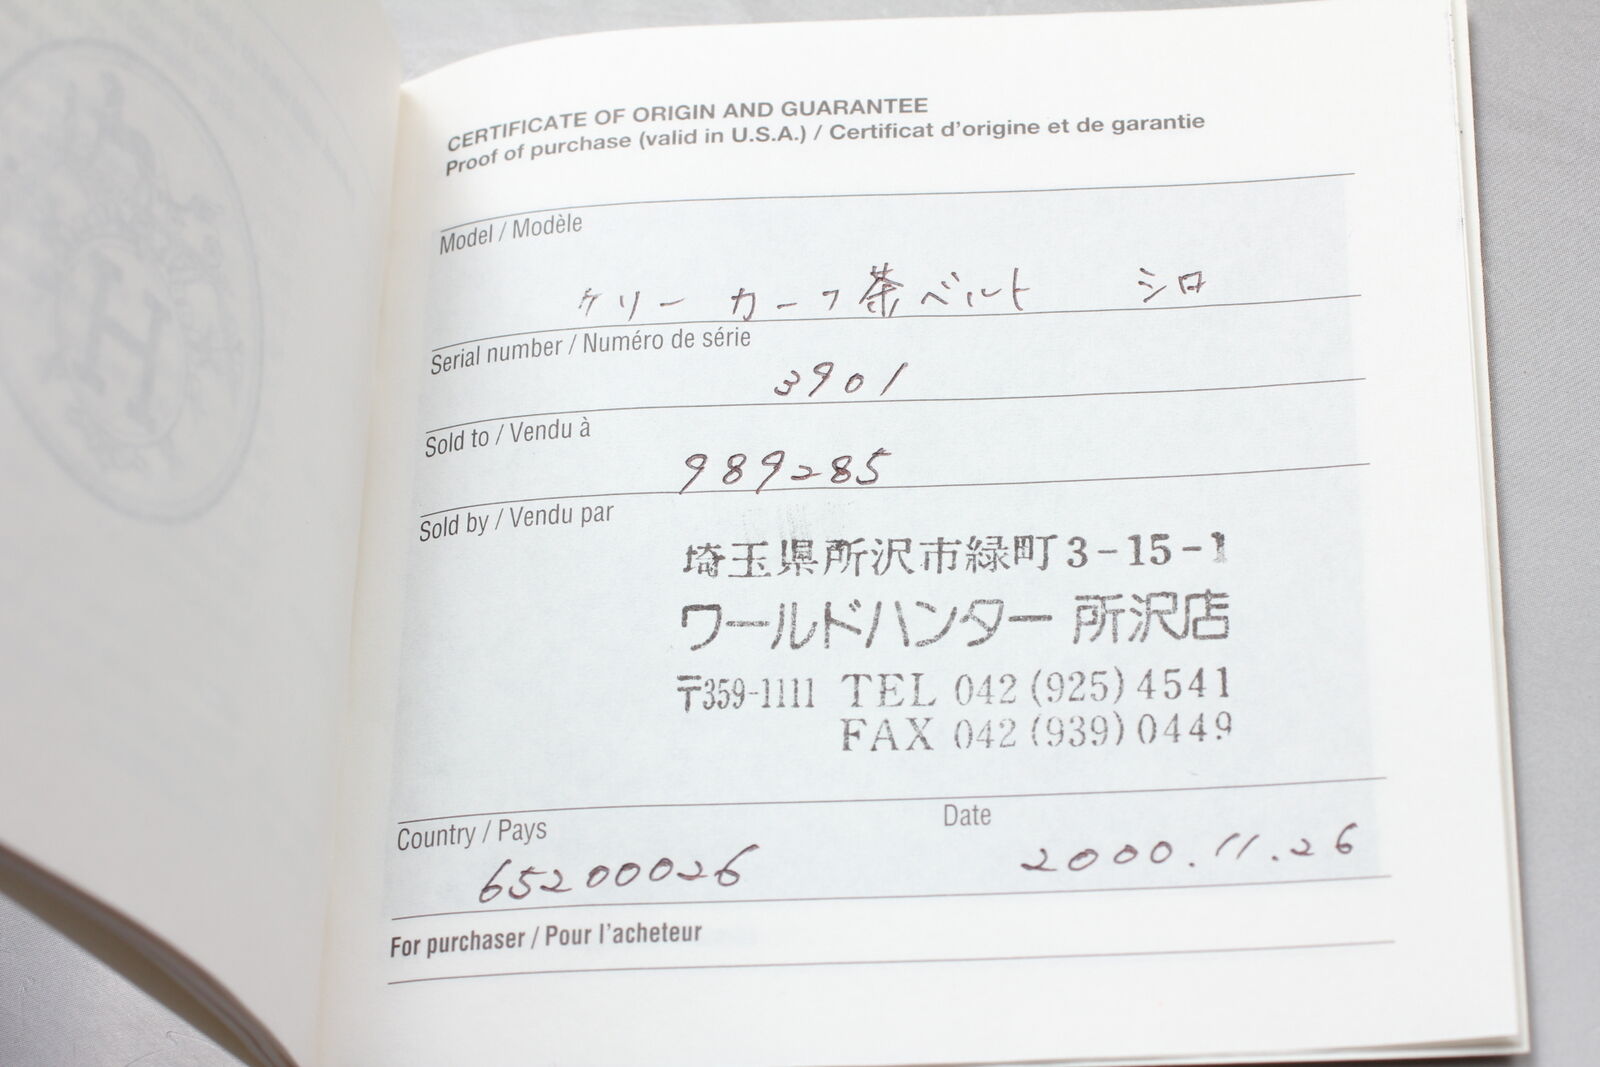 CERTIFICATE OF ORIGIN AND GUARANTEE
Proof of purchase (valid in U.S.A.) / Certificat d'origine et de garantie
Model / Modèle
ケリー カーフ茶ベルト シロ
Serial number / Numéro de série
3901
Sold to / Vendu à
989285
Sold by / Vendu par
埼玉県所沢市緑町3-15-1
ワールドハンター 所沢店
〒359-1111 TEL 042 (925) 4541
FAX 042 (939) 0449
Country / Pays
65200026
Date
2000.11.26
For purchaser / Pour l'acheteur